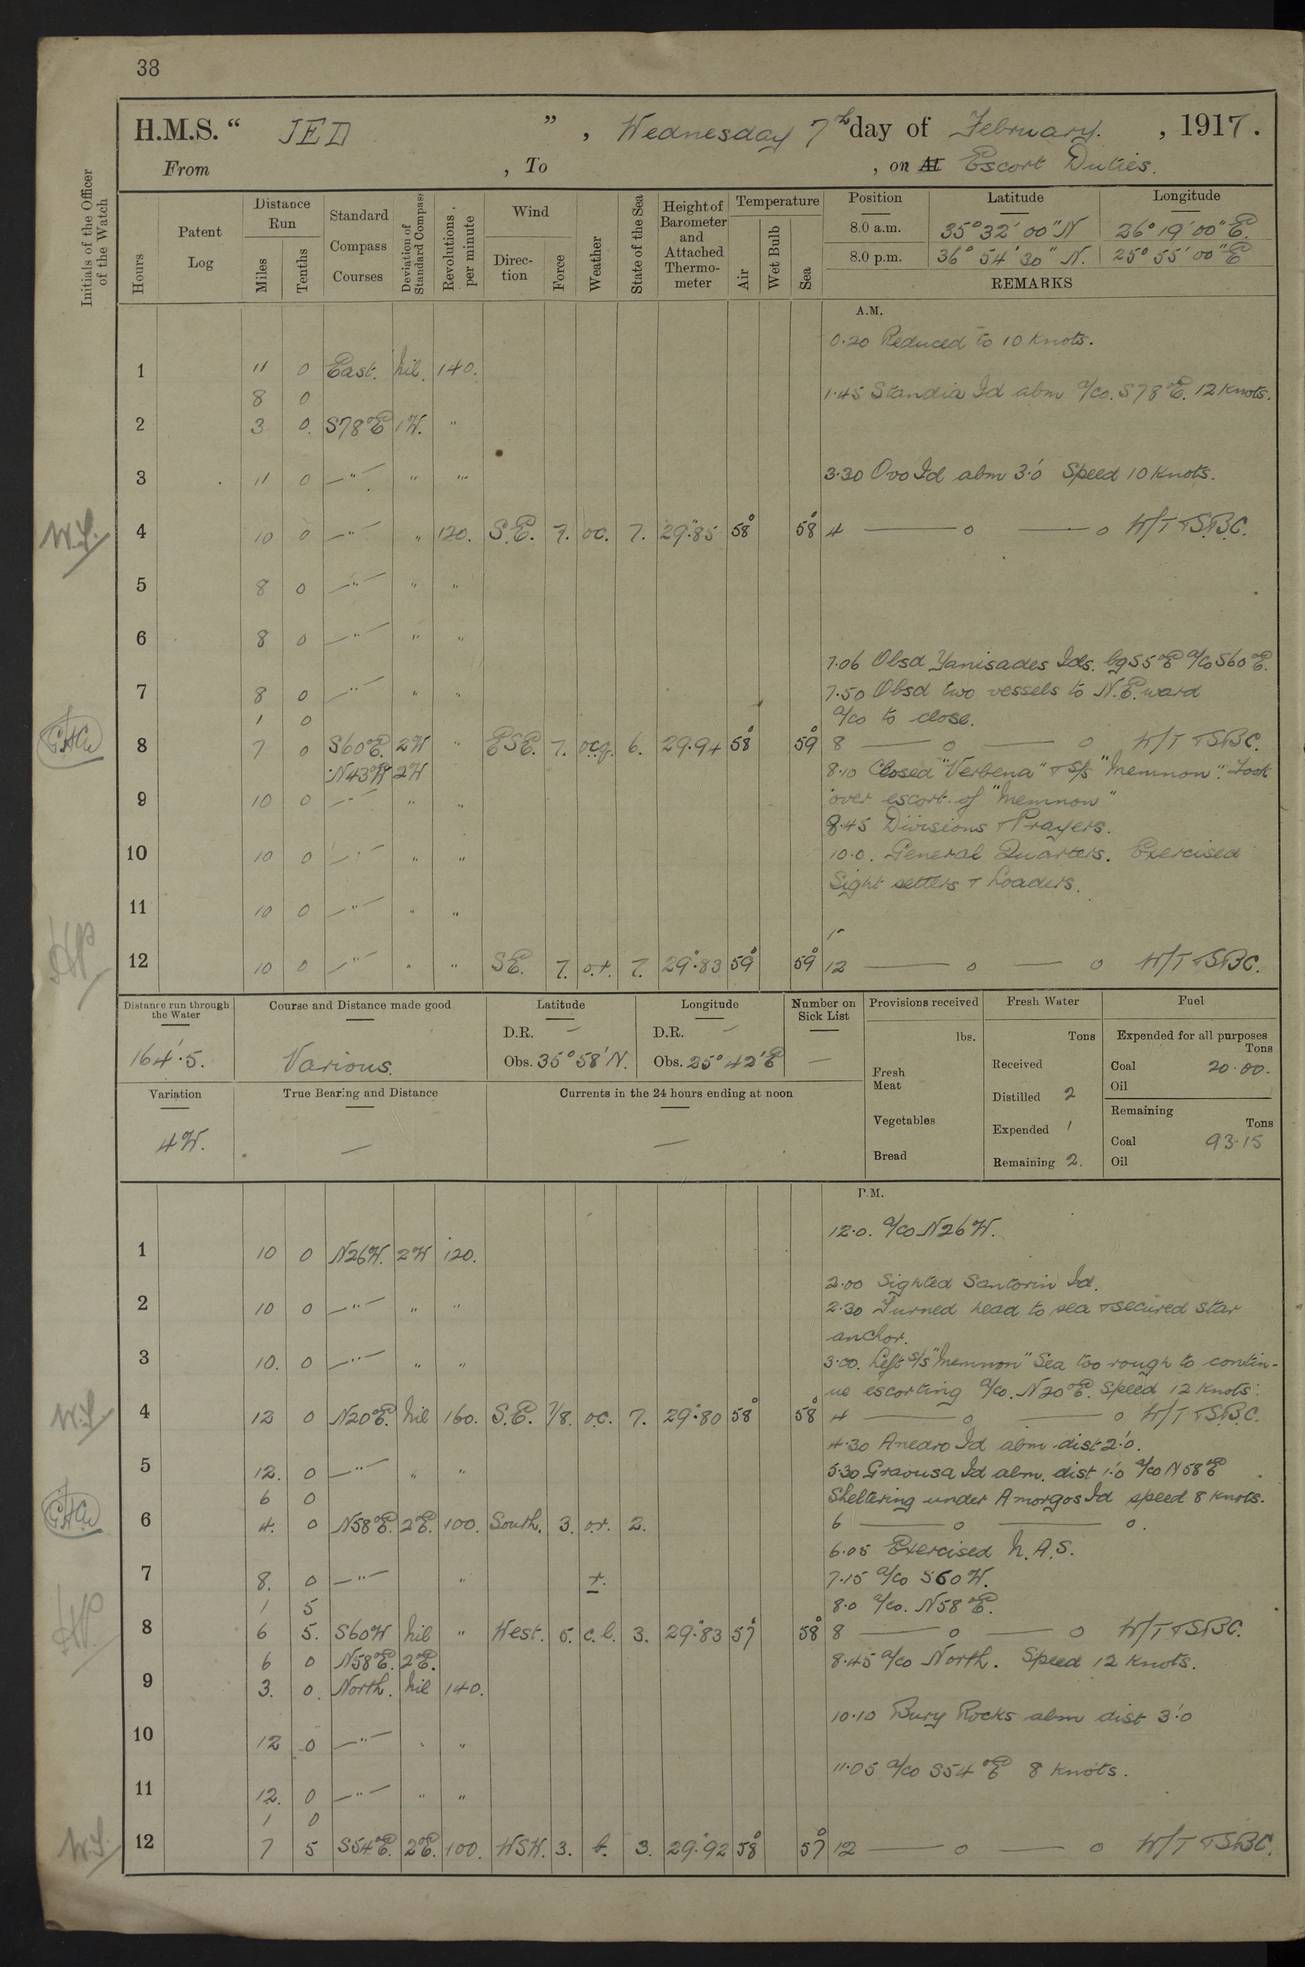 38
H.M.S. “ JED ” , Wednesday 7th day of February. , 1917.
From , To , on At Escort Duties.
Initials of the Officer of the Watch
Hours
Patent Log
Distance Run
Miles
Tenths
Standard Compass Courses
Deviation of Standard Compass
Revolutions per minute
Wind
Direction
Force
Weather
State of the Sea
Height of Barometer and Attached Thermometer
Temperature
Air
Wet Bulb
Sea
Position Latitude Longitude
8.0 a.m. 35° 32' 00" N 26° 19' 00" E.
8.0 p.m. 36° 54' 30" N. 25° 55' 00" E
REMARKS
A.M.
0.20 Reduced to 10 Knots.
1 11 0 East. Nil. 140.
8 0 1.45 Standia Id abm a/co. S78°E. 12 Knots.
2 3 0. S78°E 1W. "
3 11 0 —"— " " 3.30 Ovo Id abm 3'.0 Speed 10 Knots.
W.S. 4 10 0 —"— " 120. S.E. 7. oc. 7. 29.85 58° 58° 4 —— o —— o W/T & S.B.C.
5 8 0 —"— " "
6 8 0 —"— " "
7.06 Obsd Yanisades Ids. bg S5°E a/co S60°E.
7 8 0 —"— " " 7.50 Obsd two vessels to N.E.ward
1 0 a/co to close.
8 7 0 S60°E. 2W " ESE. 7. ocq. 6. 29.94 58° 59° 8 —— o —— o W/T & SBC.
N43W 2W 8.10 Closed "Verbena" & S/S "Memnon". Took
9 10 0 —"— " " over escort of "Memnon"
8.45 Divisions & Prayers.
10 10 0 —"— " " 10.0. General Quarters. Exercised
Sight setters & Loaders.
11 10 0 —"— " "
12 10 0 —"— " " SE. 7. o.r. 7. 29.83 59° 59° 12 —— o —— o W/T & SBC.
Distance run through the Water
164'.5.
Course and Distance made good
Various.
Latitude
D.R. —
Obs. 35° 58' N.
Longitude
D.R. —
Obs. 25° 42' E
Number on Sick List
—
Provisions received
lbs.
Fresh Meat
Vegetables
Bread
Fresh Water
Tons
Received
Distilled 2
Expended 1
Remaining 2.
Fuel
Expended for all purposes
Tons
Coal 20.00.
Oil
Remaining
Tons
Coal 93.15
Oil
Variation
4W.
True Bearing and Distance
—
Currents in the 24 hours ending at noon
—
P.M.
12.0. a/co N26W.
1 10 0 N26W. 2W 120.
2.00 Sighted Santorin Id.
2 10 0 —"— " " 2.30 Turned head to sea & secured star
anchor.
3 10. 0 —"— " " 3.00. Left S/S "Memnon" Sea too rough to contin-
ue escorting a/co. N20°E. Speed 12 Knots.
W.S 4 12 0 N20°E. Nil 160. S.E. 7/8. o.c. 7. 29.80 58° 58° 4 —— o —— o W/T & S.B.C.
4.30 Anedro Id abm dist 2'.0.
5 12. 0 —"— " " 5.30 Gravousa Id abm. dist 1'.0 a/co N58°E
6 0 Sheltering under Amorgos Id speed 8 knots.
6 4. 0 N58°E. 2E. 100. South. 3. o.r. 2. 6 —— o —— o.
6.05 Exercised N.A.S.
7 8. 0 —"— " r. 7.15 a/co S60W.
1 5 8.0 a/co. N58°E.
8 6 5. S60W Nil " West. 5. c.l. 3. 29.83 57° 58° 8 —— o —— o W/T & SBC.
6 0 N58°E. 2E. 8.45 a/co North. Speed 12 Knots.
9 3. 0. North. Nil 140.
10.10 Bury Rocks abm dist 3'.0
10 12 0 —"— " "
11.05 a/co S54°E 8 Knots.
11 12. 0 —"— " "
1 0
W.S. 12 7 5 S54°E. 2E. 100. WSW. 3. b. 3. 29.92 58° 57° 12 —— o —— o W/T & SBC.